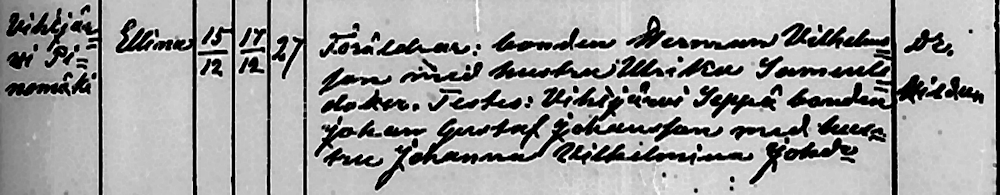 Vihtjär= Ellina 15/12 17/12 27 Föräldrar: bonden Herman Vilhelms
vi Pi= son med hustru Ulrika Samuels
nomäki doter. Testes: Vihtjärvi Seppä bonden
Johan Gustaf Johansson med hus=
tru Johanna Vilhelmina Johds
Dr.